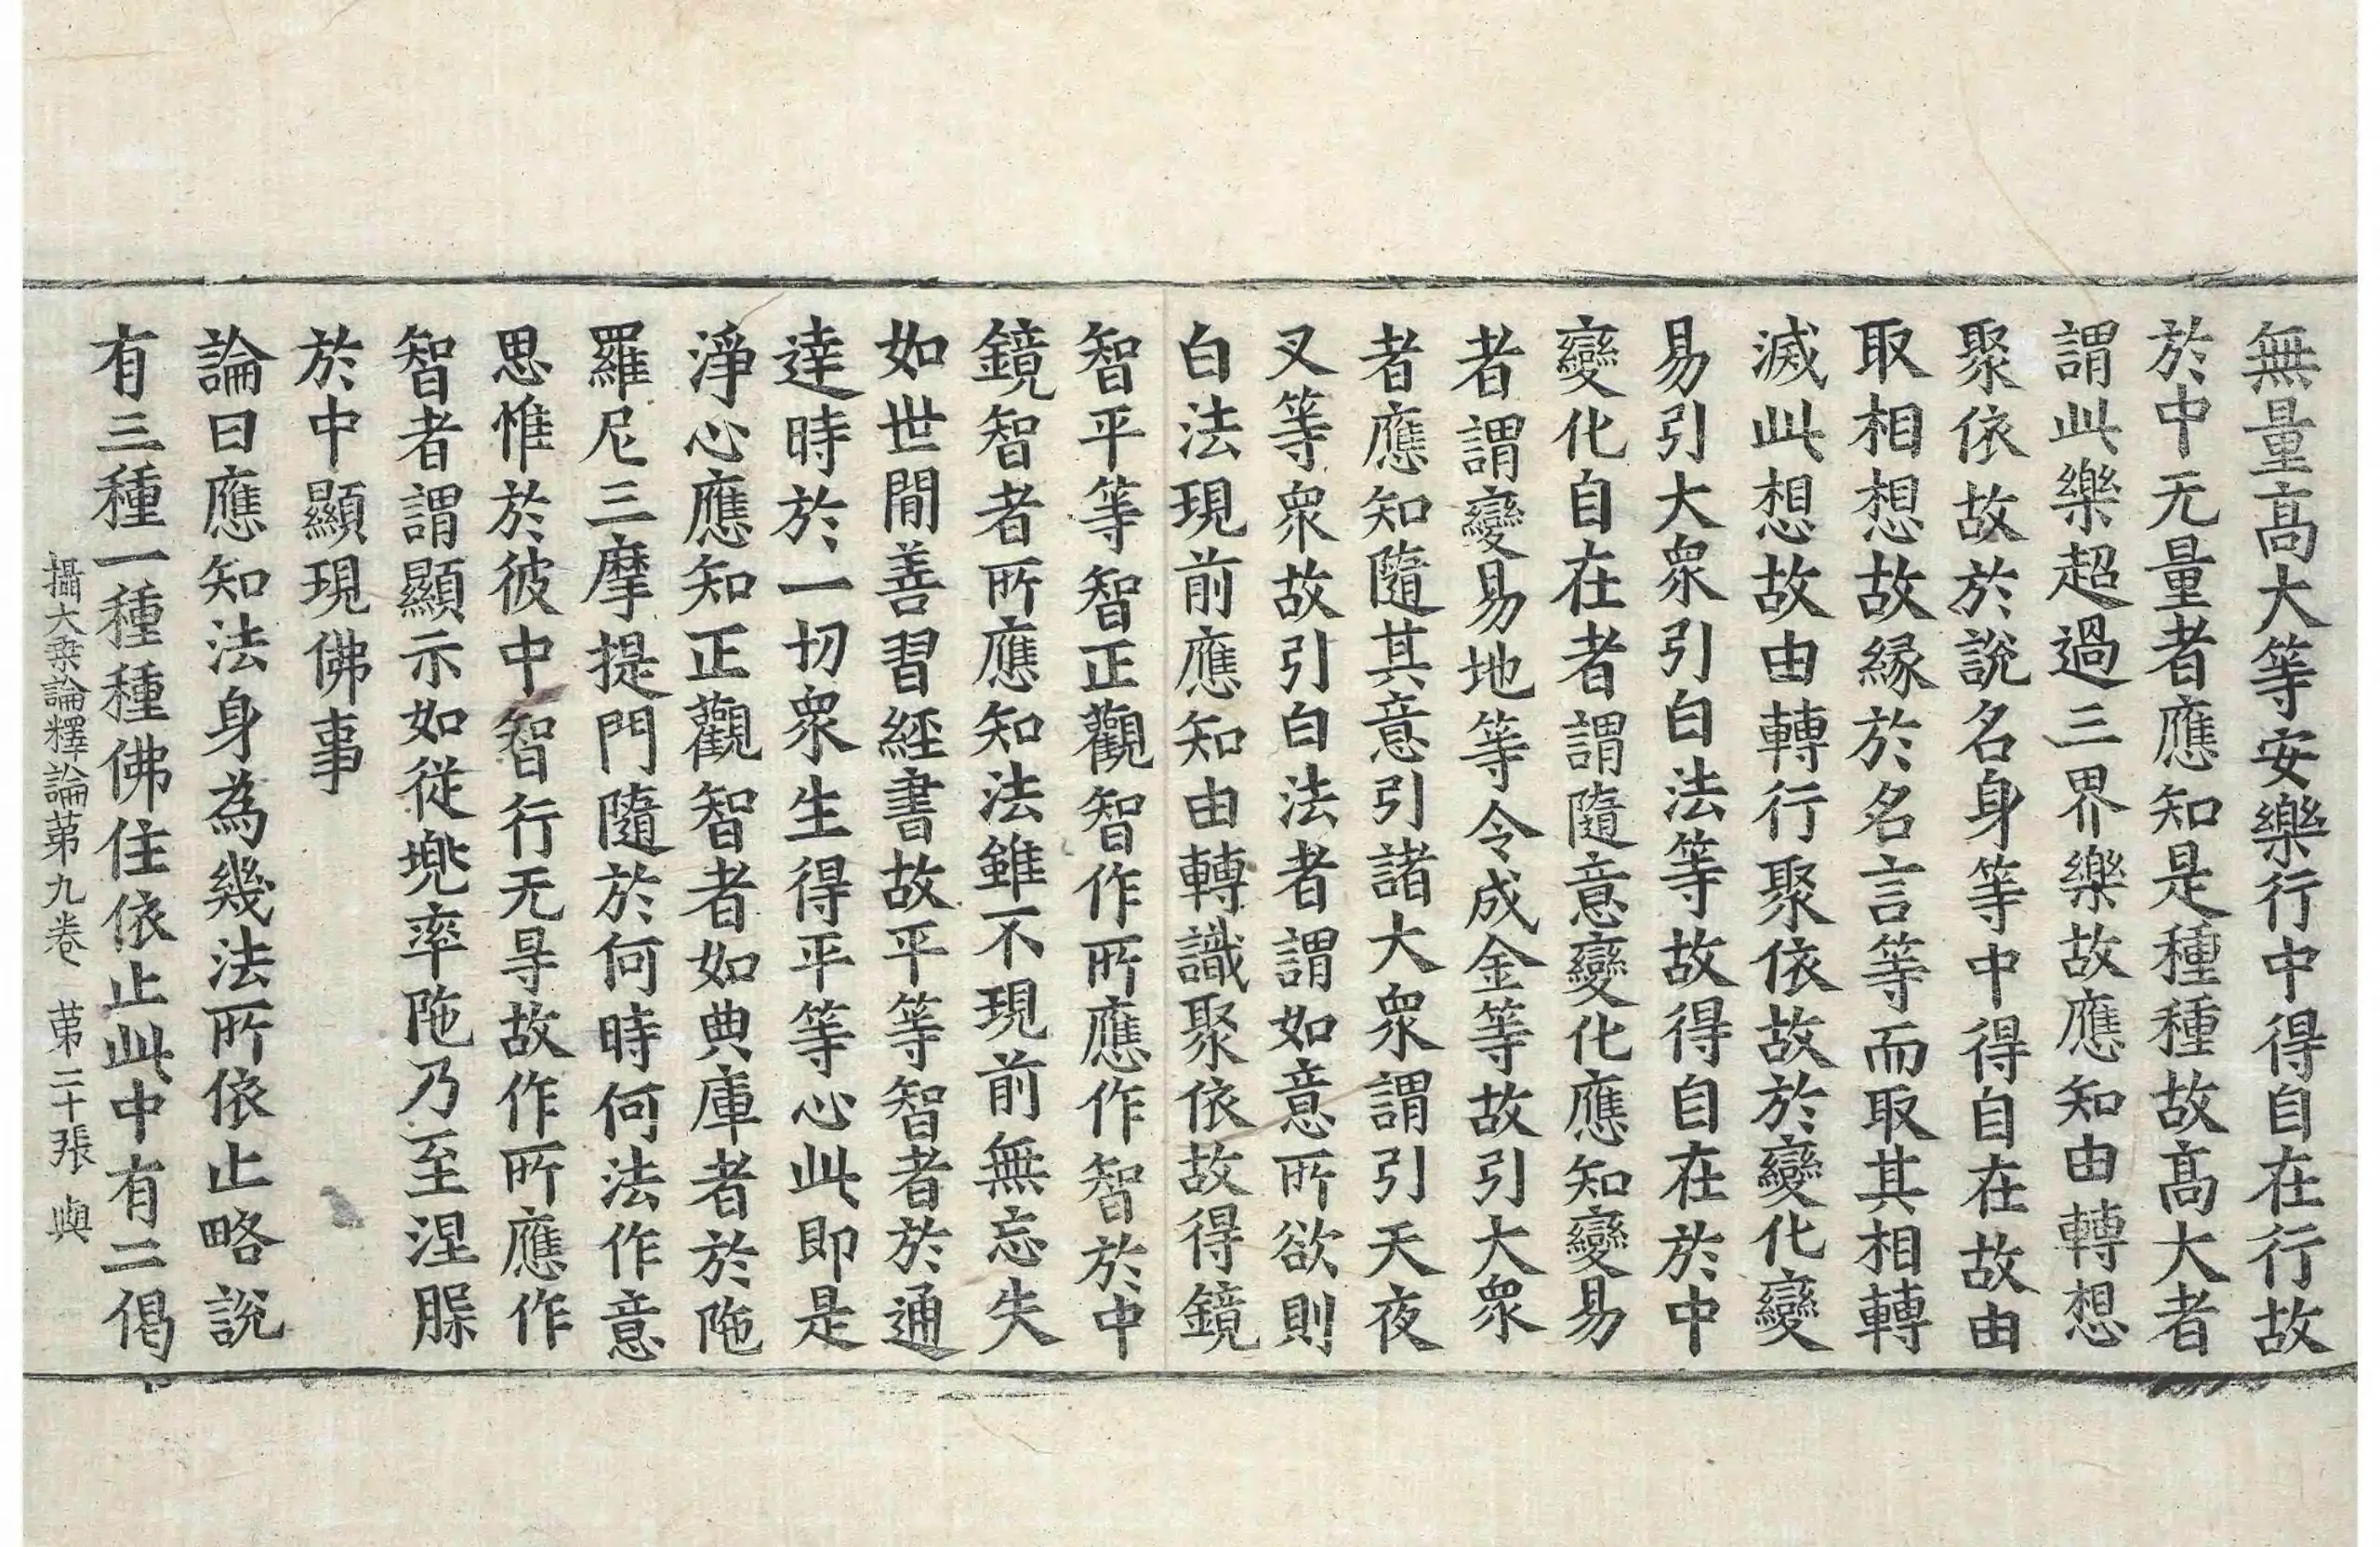 無量髙大等安樂行中得自在行故
於中无量者應知是種種故髙大者
謂此樂超過三界樂故應知由轉想
聚依故於說名身等中得自在故由
取相想故縁於名言等而取其相轉
滅此想故由轉行聚依故於變化變
易引大衆引白法等故得自在於中
變化自在者謂隨意變化應知變易
者謂變易地等令成金等故引大衆
者應知隨其意引諸大衆謂引天夜
叉等衆故引白法者謂如意所欲則
白法現前應知由轉識聚依故得鏡
智平等智正觀智作所應作智於中
鏡智者所應知法雖不現前無忘失
如世間善習經書故平等智者於通
達時於一切衆生得平等心此即是
淨心應知正觀智者如典庫者於陁
羅尼三摩提門隨於何時何法作意
思惟於彼中智行无㝵故作所應作
智者謂顯示如從兠率陁乃至涅脲
於中顯現佛事
論曰應知法身為幾法所依止略說
有三種一種種佛住依止此中有二偈
攝大乗論釋論苐九卷 苐二十張 與